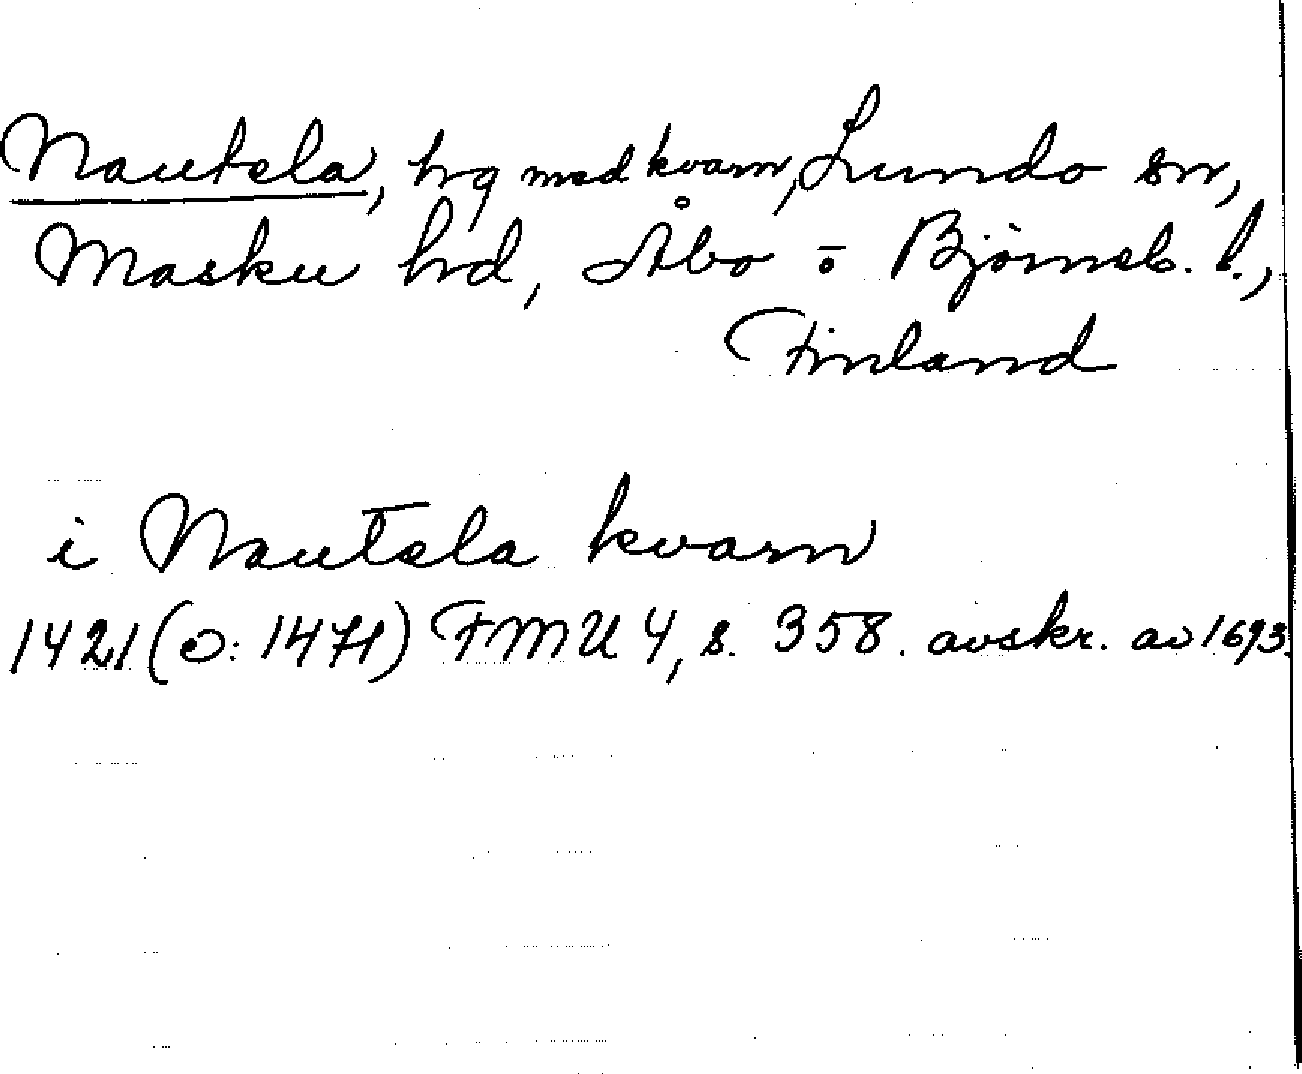 Nautela, hrg med kvarn, Lundo sn,
Masku hrd, Åbo o Björneb. l.,
Finland
i Nautela kvarn
1421 (ɔ: 1471) FMU 4, s. 358. avskr. av 1693.